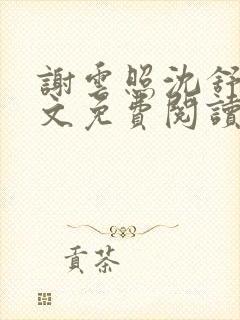 謝雲照沈舒
文免費閱讀
貢茶